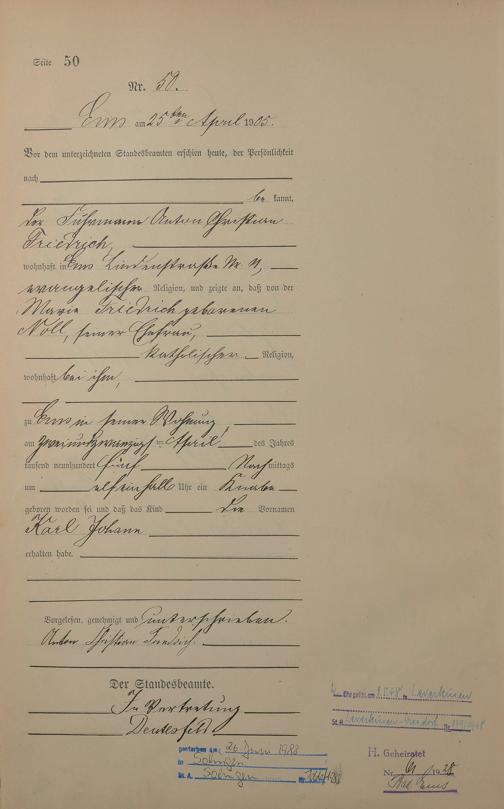 Seite 50
Nr. 50.
Ems am 25ten April 1905.
Vor dem unterzeichneten Standesbeamten erschien heute, der Persönlichkeit
nach
be kannt,
der Fuhrmann Anton Christian
Friedrich,
wohnhaft in Ems Lindenstraße Nr.
evangelischer Religion, und zeigte an, daß von der
Marie Friedrich geborenen
Noll, seiner Ehefrau,
katholischer Religion,
wohnhaft bei ihm,
zu Ems in seiner Wohnung,
am zweiundzwanzigsten April des Jahres
tausend neunhundert fünf Nachmittags
um elfeinhalb Uhr ein Knabe
geboren worden sei und daß das Kind die Vornamen
Karl Johann
erhalten habe.
Vorgelesen, genehmigt und unterschrieben.
Anton Christian Friedrich.
Der Standesbeamte.
In Vertretung
gestorben am: 26 Juni 1988
in Solingen
St. A. Solingen Nr.
Ehe geschl. am in Leverkusen
St. A. Leverkusen- Nr.
H. Geheiratet
Nr. 61 / 1928
Bad Ems